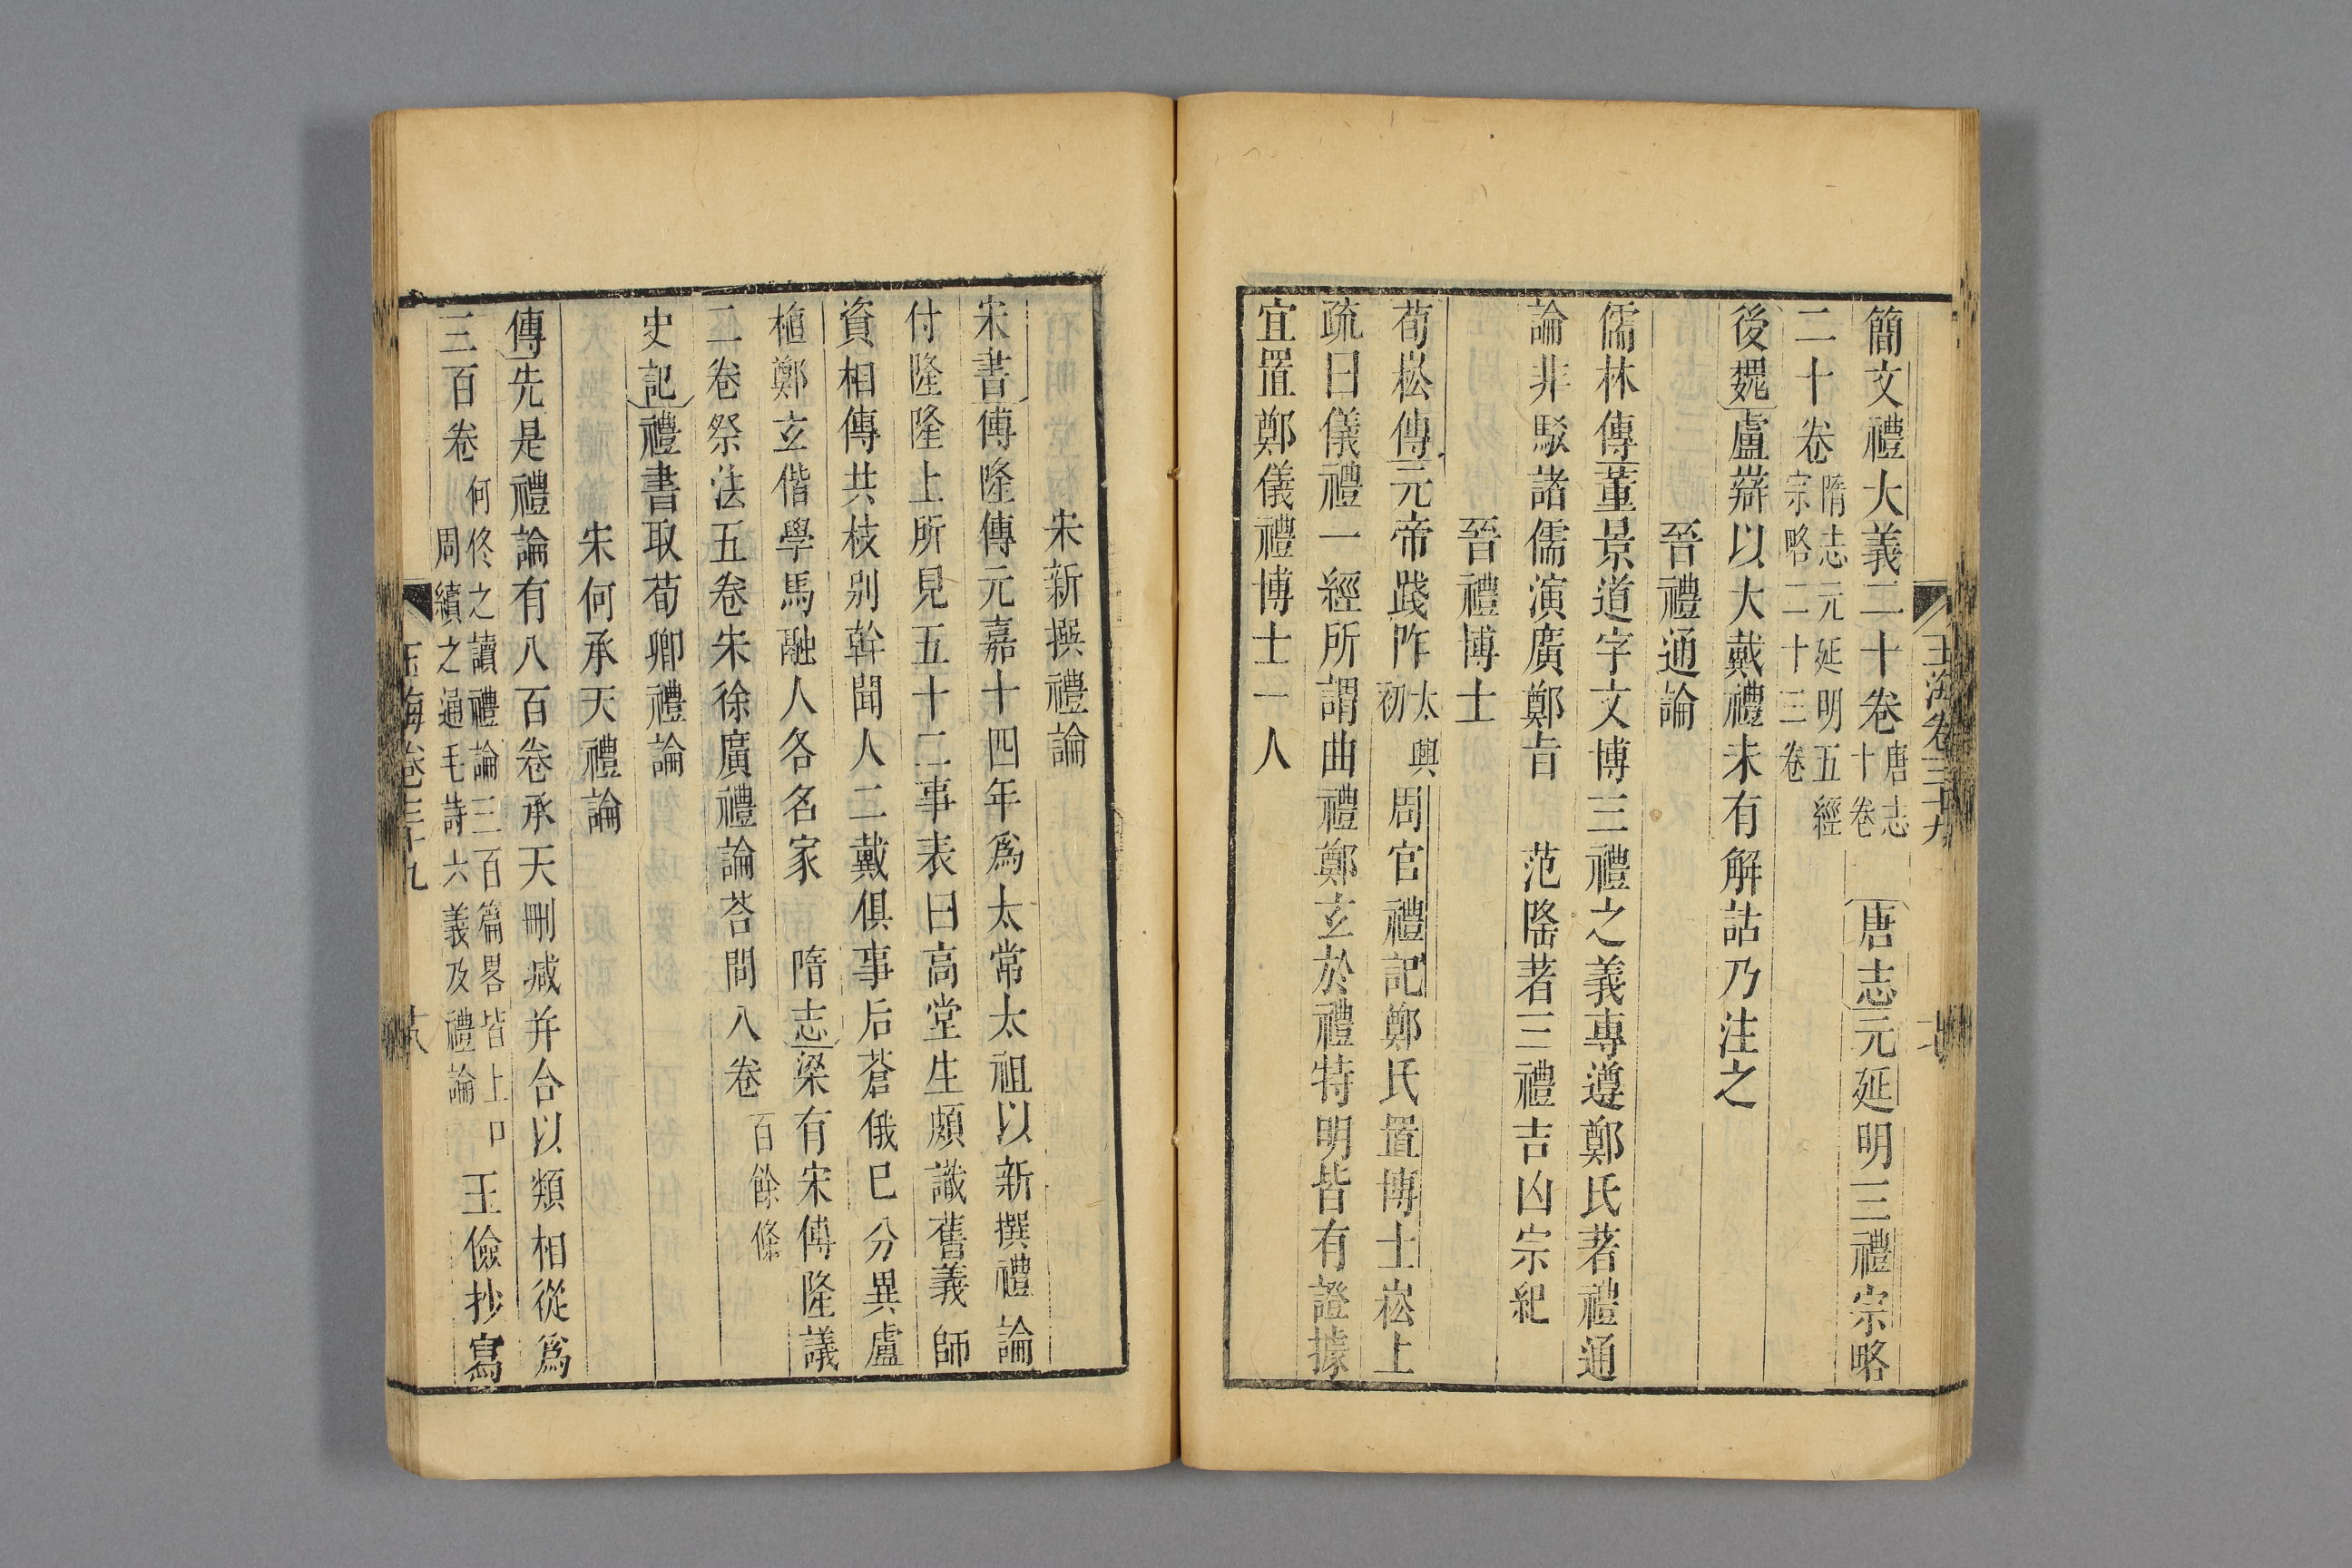 簡文禮大義二十卷唐志十卷 唐志元延明三禮宗略
二十卷隋志元延明五經宗略二十三卷
後魏盧辯以大戴禮未有解詁乃注之
晉禮通論
儒林傳董景道字文博三禮之義專遵鄭氏著禮通
論非駁諸儒演廣鄭旨 范隆著三禮吉凶宗紀
晉禮博士
荀崧傳元帝踐阼太興初周官禮記鄭氏置博士崧上
疏曰儀禮一經所謂曲禮鄭玄於禮特明皆有證據
宜置鄭儀禮博士一人
宋新撰禮論
宋書傅隆傳元嘉十四年爲太常太祖以新撰禮論
付隆隆上所見五十二事表曰高堂生頗識舊義師
資相傳共枝别幹聞人二戴俱事后蒼俄已分異盧
植鄭玄偕學馬融人各名家 隋志梁有宋傅隆議
二卷祭法五卷宋徐廣禮論荅問八卷百餘條
史記禮書取荀卿禮論
宋何承天禮論
傳先是禮論有八百卷承天刪减并合以類相從爲
三百卷何佟之讀禮論三百篇畧皆上口周續之通毛詩六義及禮論王儉抄寫
玉海卷三十九